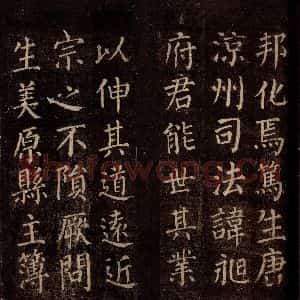 邦化焉篤生唐
涼州司法諱昶
府君能世其業
以伸其道遠近
宗之不隕厥問
生美原縣主簿